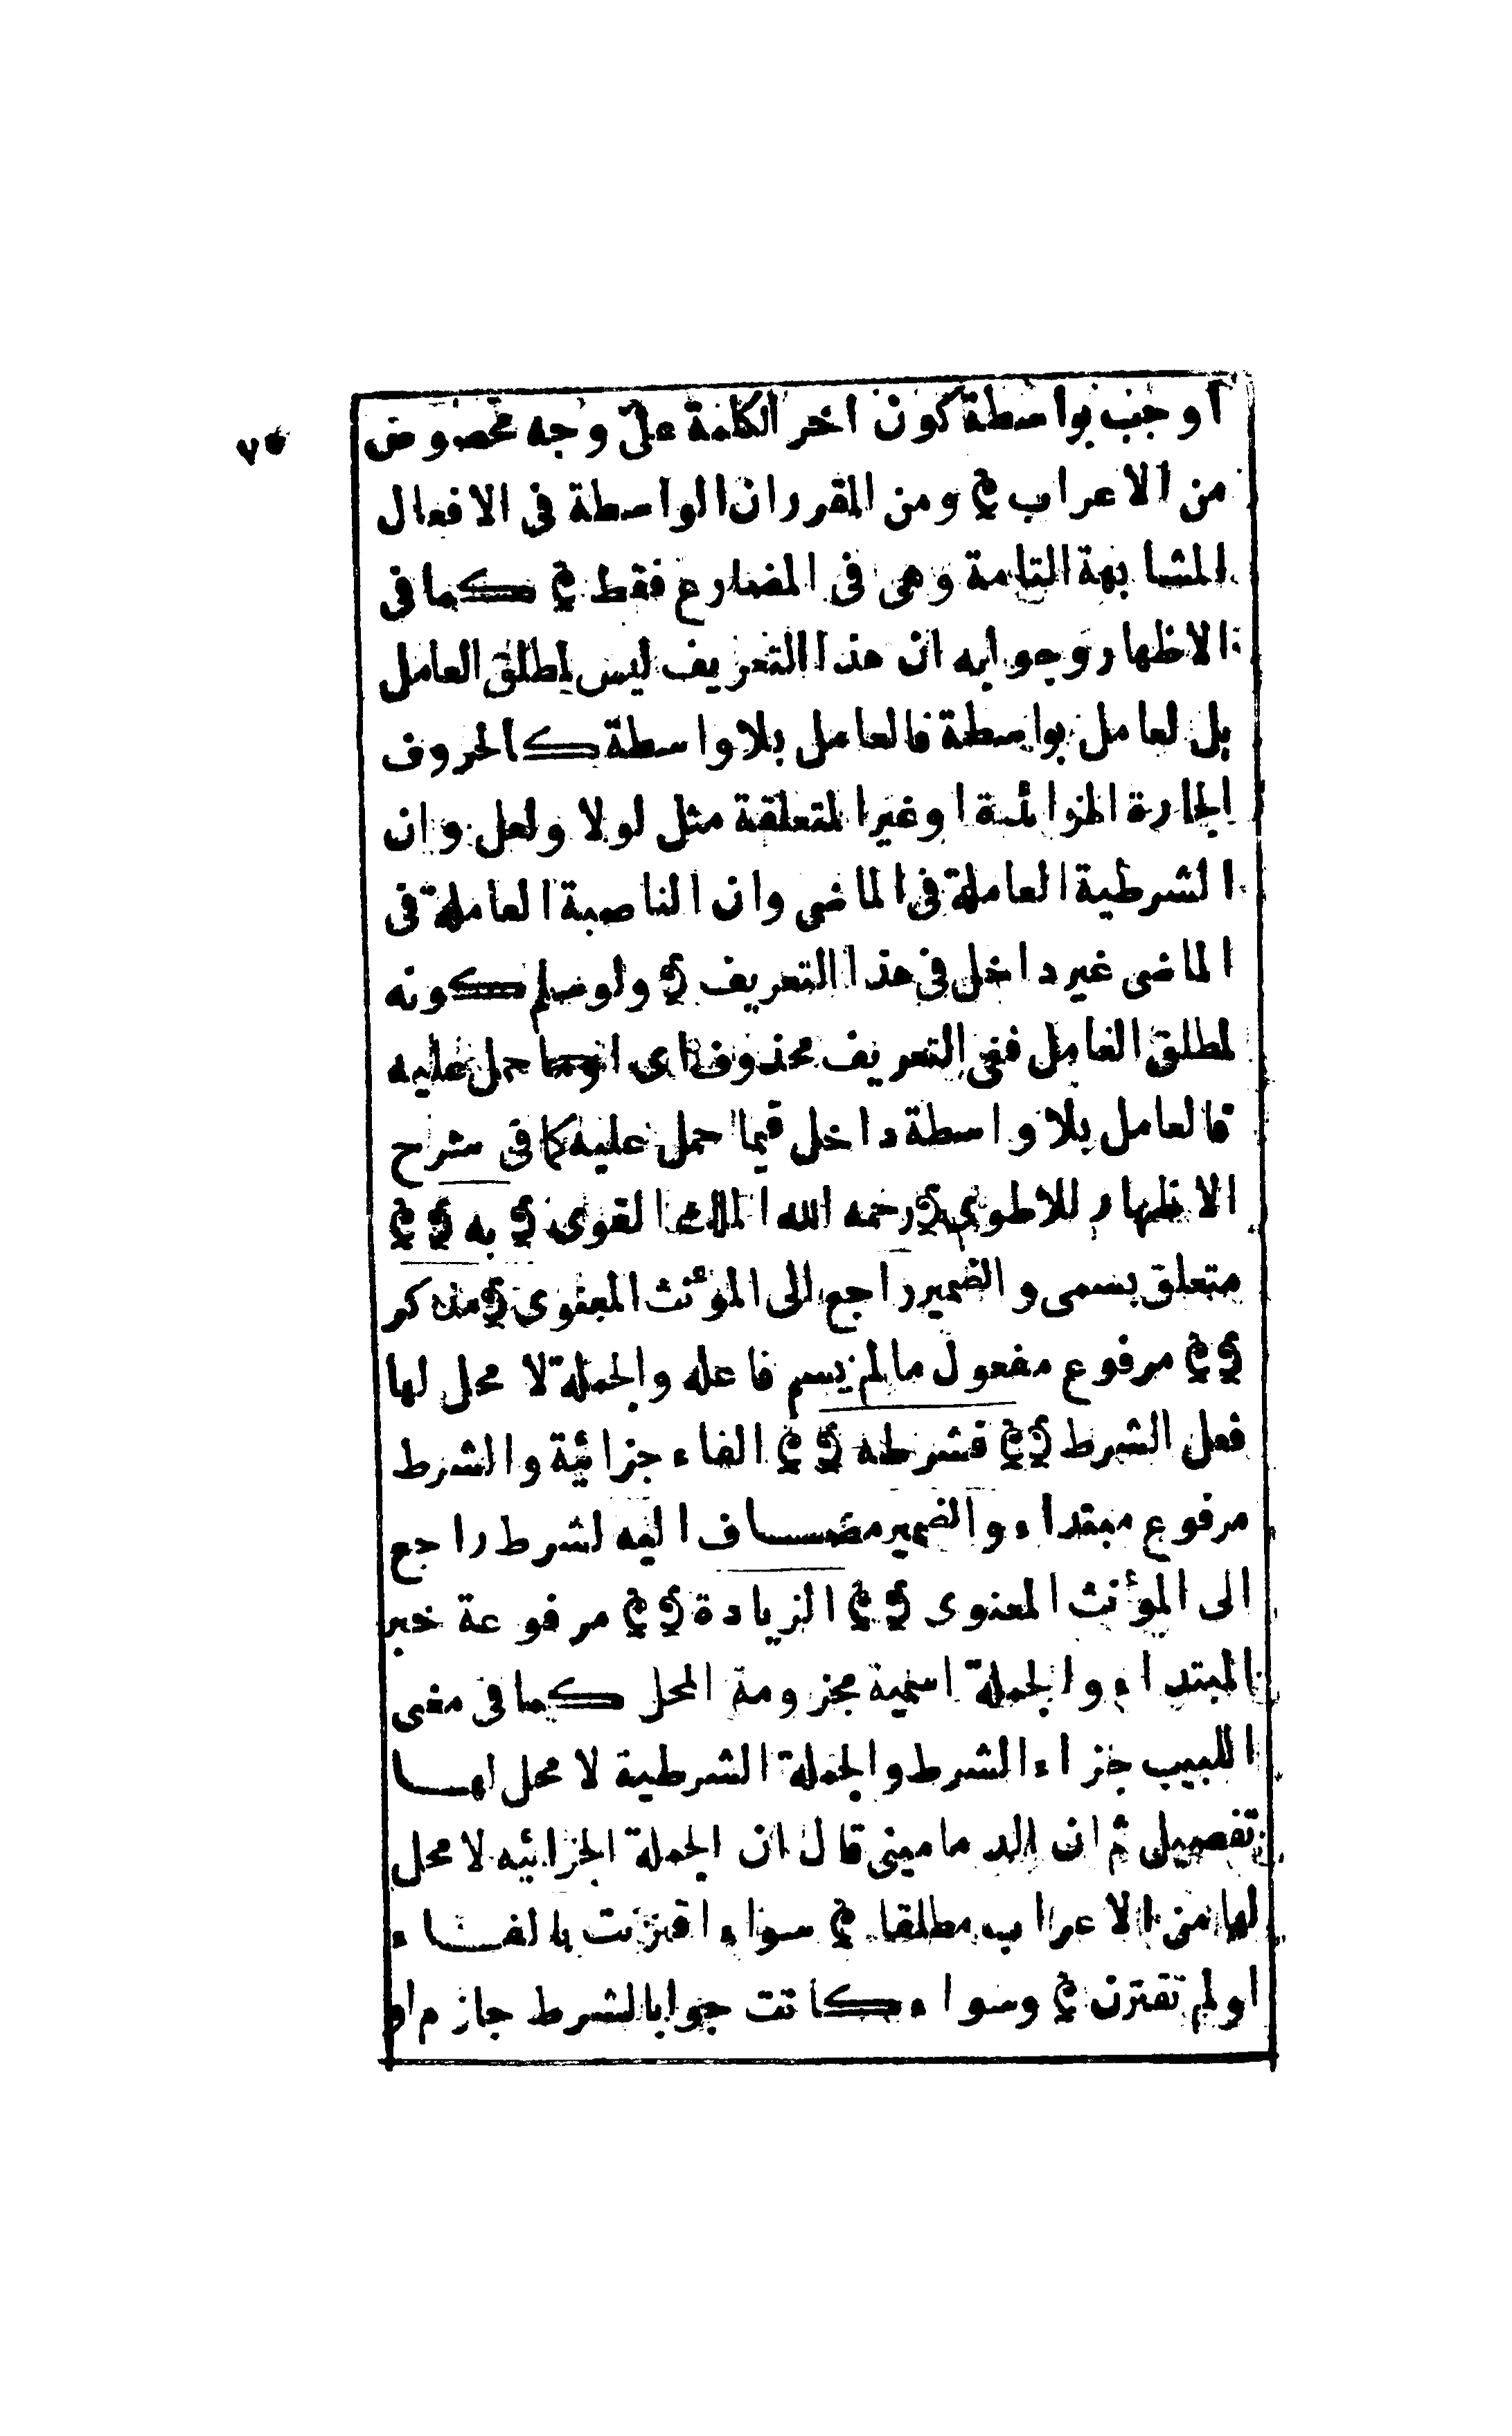 ٧٥
اوجب بواسطة كون اخر الكلمة على وجه مخصوص
من الاعراب ﴾ ومن المقرر ان الواسطة فى الافعال
المشابهة التامة وهى فى المضارع فقط ﴾ كما فى
الاظهار وجوابه ان هذا التعريف ليس لمطلق العامل
بل لعامل بواسطة فالعامل بلا واسطة كالحروف
الجارة الزوائدة او غير المتعلقة مثل لولا ولعل وان
الشرطية العاملة فى الماضى وان الناصبة العاملة فى
الماضى غير داخل فى هذا التعريف ﴿ ولو سلم كونه
لمطلق العامل ففى التعريف محذوف اى او ما حمل عليه
فالعامل بلا واسطة داخل فيما حمل عليه كما فى شرح
الاظهار للاطوى ﴿ رحمه الله الملك القوى ﴿ به ﴿ ﴾
متعلق بسمى والضمير راجع الى المؤنث المعنوى ﴿ مذكر
﴿ ﴾ مرفوع مفعول مالم يسم فاعله والجملة لا محل لها
فعل الشرط ﴿ ﴾ فشرطه ﴿ ﴾ الفاء جزائية والشرط
مرفوع مبتداء والضمير مضاف اليه لشرط راجع
الى المؤنث المعنوى ﴿ ﴾ الزيادة ﴿ ﴾ مرفوعة خبر
المبتداء والجملة اسمية مجزومة المحل كما فى مغنى
اللبيب جزاء الشرط والجملة الشرطية لا محل لها
تفصيل ثم ان الدمامينى قال ان الجملة الجزائيه لا محل
لها من الاعراب مطلقا ﴾ سواء اقترنت بالفاء
او لم تقترن ﴾ وسواء كانت جوابا لشرط جازم او